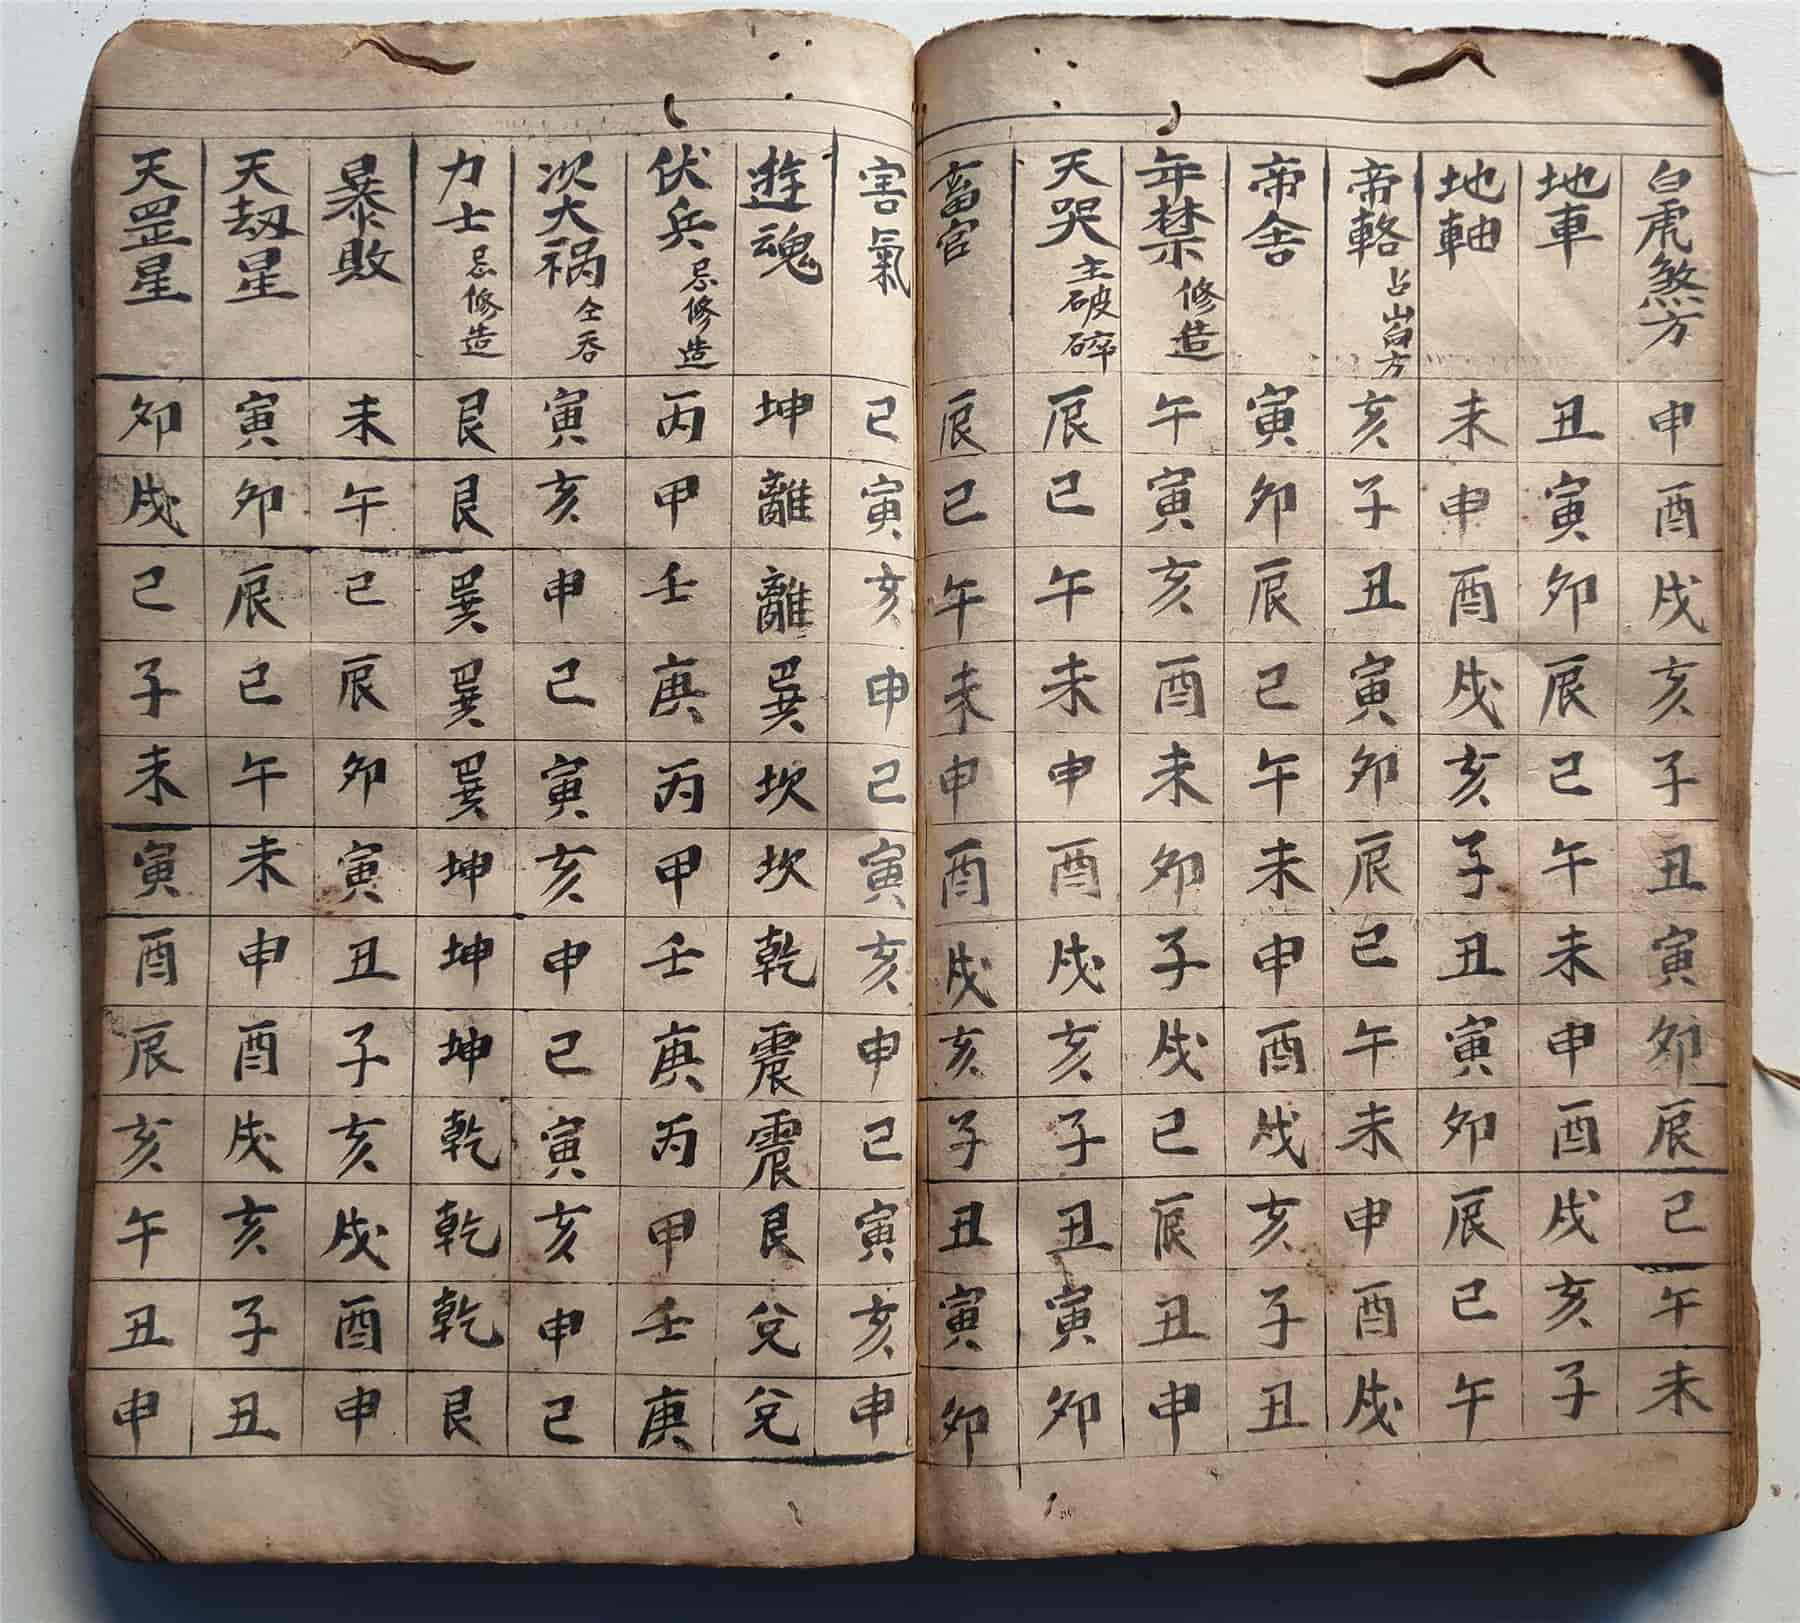 白虎煞方 申 酉 戌 亥 子 丑 寅 卯 辰 巳 午 未
地車 丑 寅 卯 辰 巳 午 未 申 酉 戌 亥 子
地軸 未 申 酉 戌 亥 子 丑 寅 卯 辰 巳 午
帝輅 占山方 亥 子 丑 寅 卯 辰 巳 午 未 申 酉 戌
帝舍 寅 卯 辰 巳 午 未 申 酉 戌 亥 子 丑
年禁 修造 午 寅 亥 酉 未 卯 子 戌 巳 辰 丑 申
天哭 主破碎 辰 巳 午 未 申 酉 戌 亥 子 丑 寅 卯
畜官 辰 巳 午 未 申 酉 戌 亥 子 丑 寅 卯
害氣 巳 寅 亥 申 巳 寅 亥 申 巳 寅 亥 申
遊魂 坤 離 離 巽 坎 坎 乾 震 震 艮 兌 兌
伏兵 忌修造 丙 甲 壬 庚 丙 甲 壬 庚 丙 甲 壬 庚
次大祸 寅 亥 申 巳 寅 亥 申 巳 寅 亥 申 巳
力士 忌修造 艮 艮 巽 巽 巽 坤 坤 坤 乾 乾 乾 艮
暴敗 未 午 巳 辰 卯 寅 丑 子 亥 戌 酉 申
天刼星 寅 卯 辰 巳 午 未 申 酉 戌 亥 子 丑
天罡星 卯 戌 巳 子 未 寅 酉 辰 亥 午 丑 申